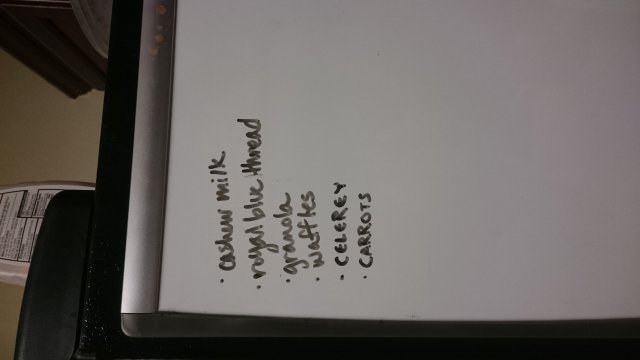 · cashew milk
· royal blue thread
· granola
· waffles
· CELEREY
· CARROTS